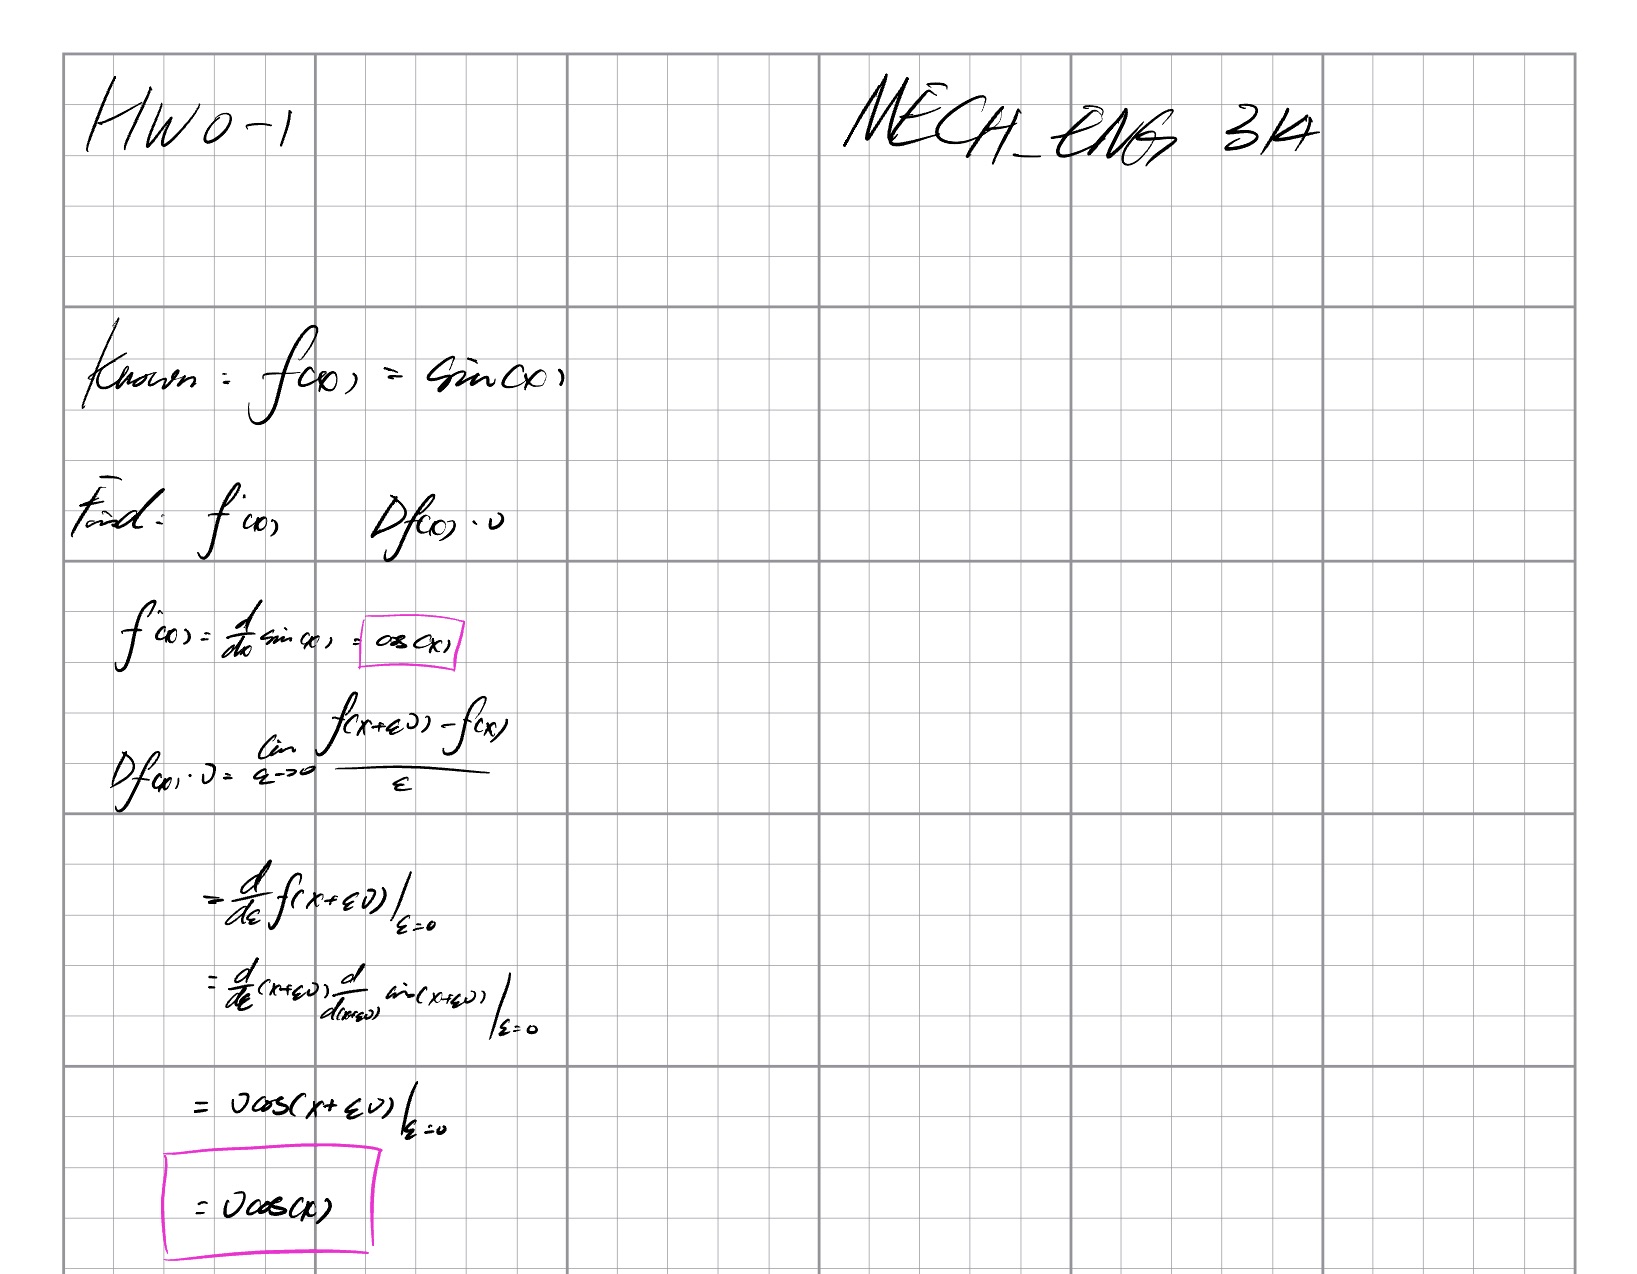 HW0-1
MECH_ENG 314
Known: f(x) = sin(x)
Find: f'(x) Df(x)·v
f'(x) = d/dx sin(x) = cos(x)
Df(x)·v = lim ε→0 (f(x+εv) - f(x))/ε
= d/dε f(x+εv)|ε=0
= d/dε (x+εv) d/d(x+εv) sin(x+εv)|ε=0
= v cos(x+εv)|ε=0
= v cos(x)